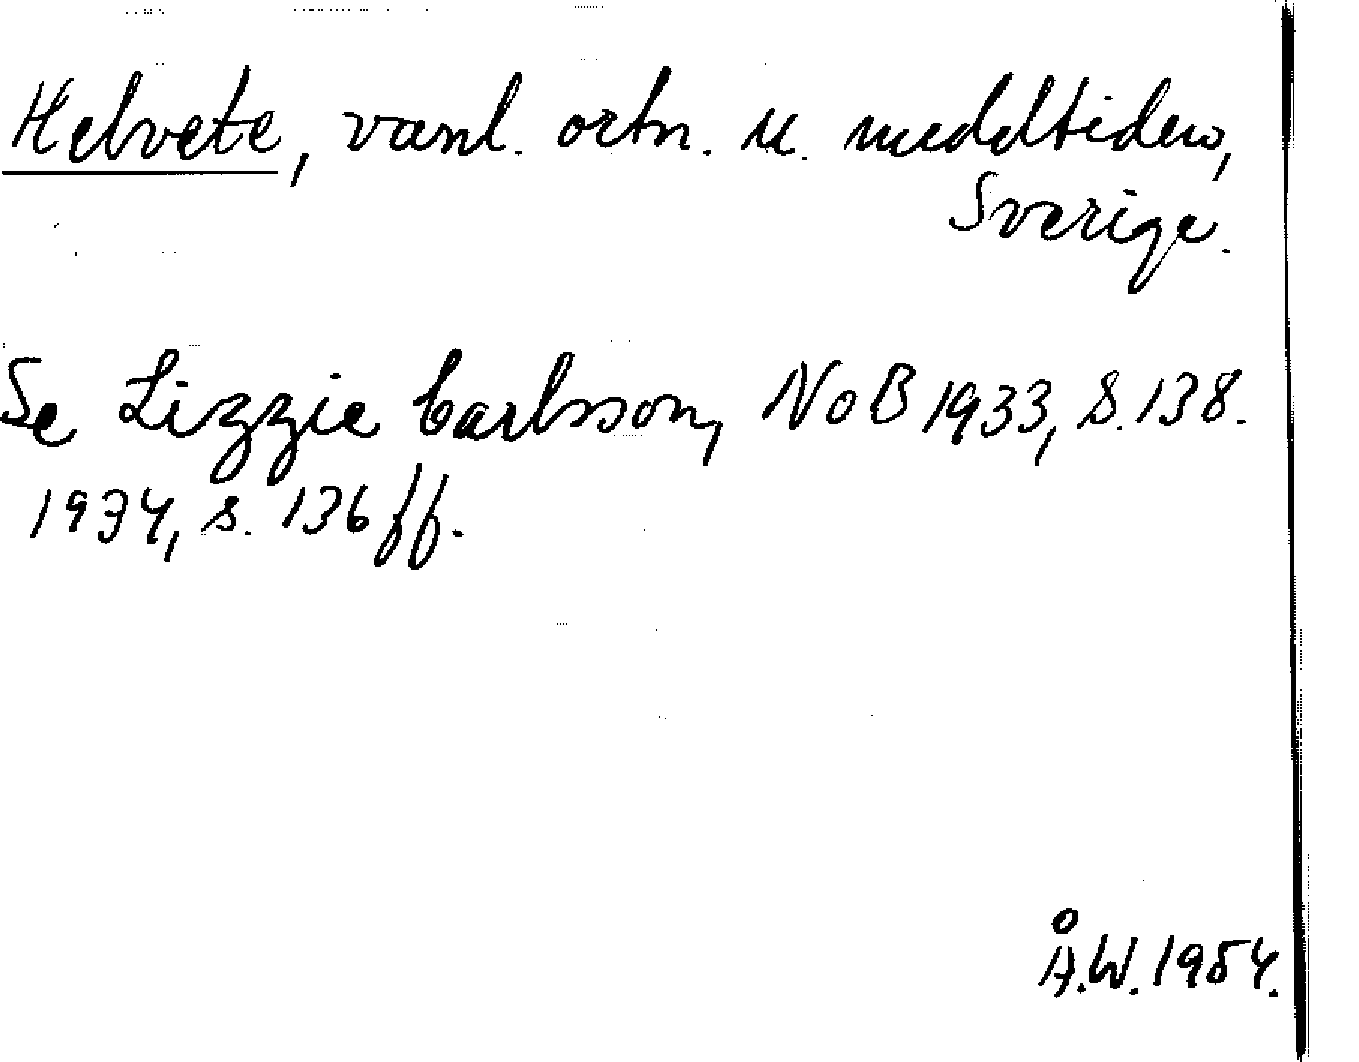 Helvete, vanl. ortn. u. medeltiden,
Sverige.
Se Lizzie Carlsson, NoB 1933, s. 138.
1934, s. 136 ff.
Å.W. 1954.